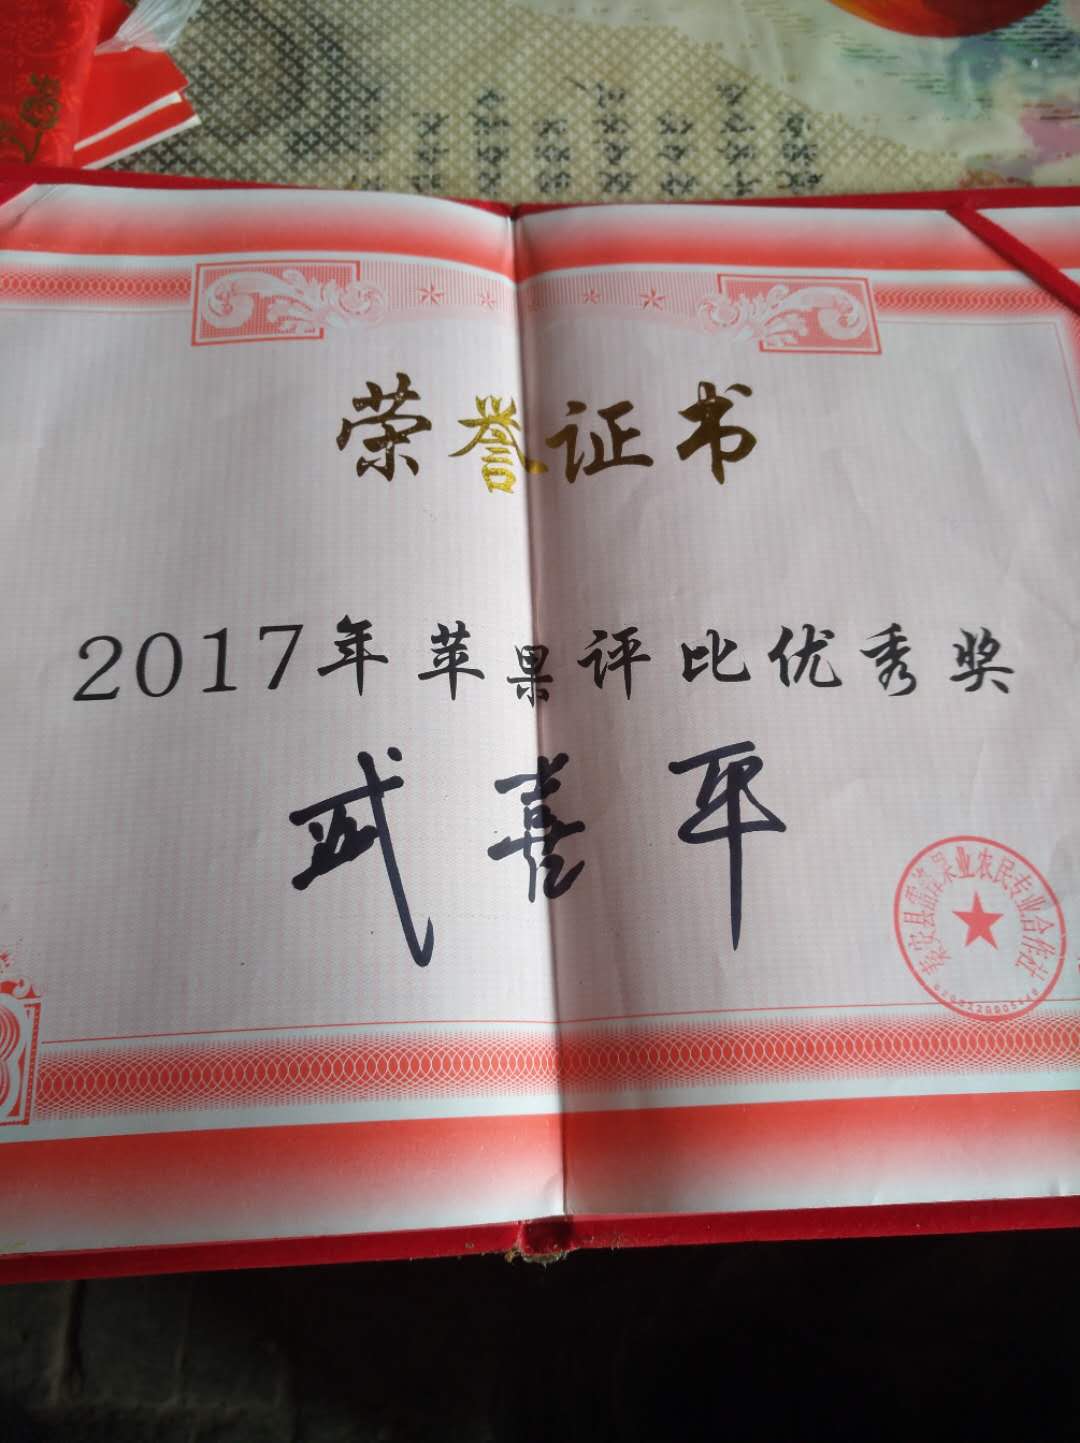 荣誉证书
2017年苹果评比优秀奖
武喜平
秦安县雪源果业农民专业合作社